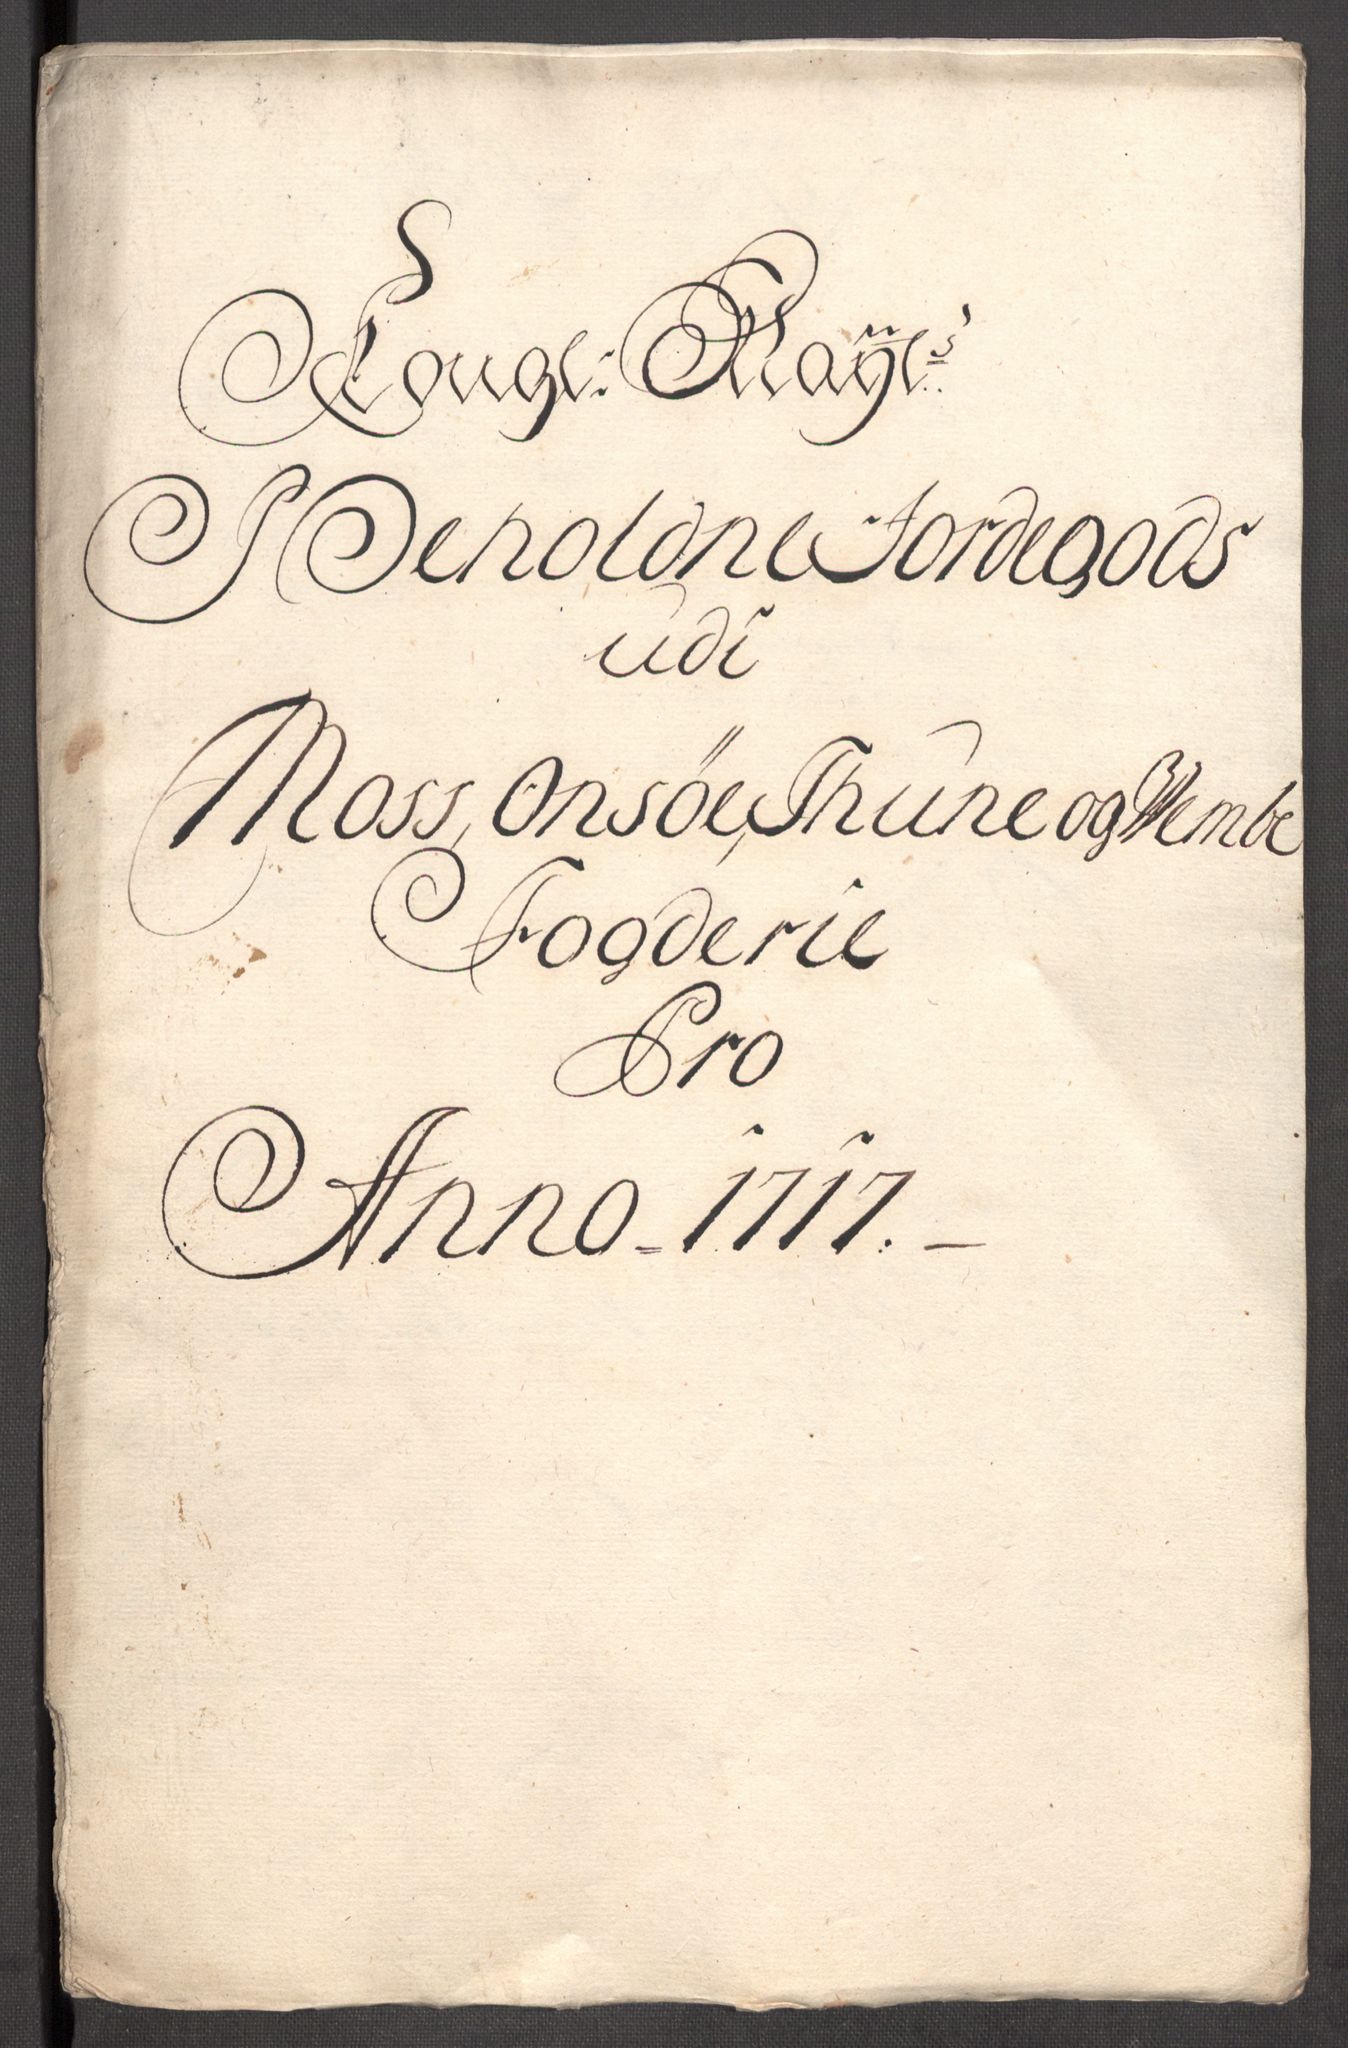 Kongl: Mayt:s
Beholdne Jordegods
udi
Moss, Onsöe, Thune og Wembe
Fogderie
Pro
Anno 1717.